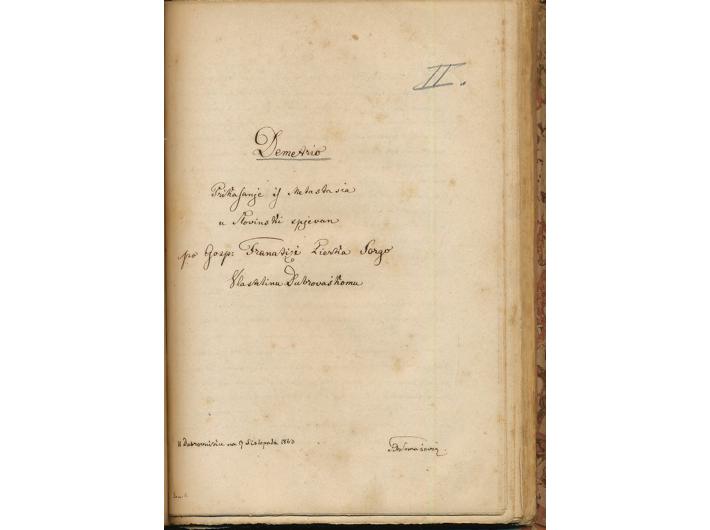 II.
Demetrio
Prikasanje is Metastasia
u Slovinski spjevan
po Gosp: Franatici Pierka Sorgo
Vlastelinu Dubrovaskomu
U Dubrovniku na 9 Listopada 1863